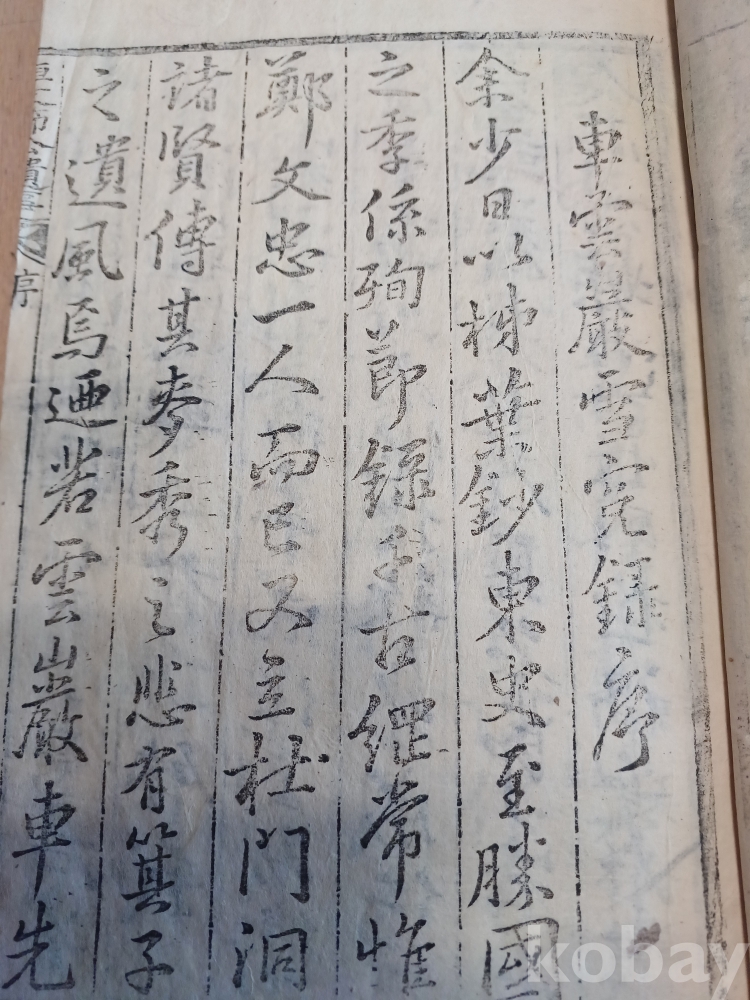 車雲巖雪寃錄序
余少日以柹葉鈔東史至勝國
之季係殉節錄千古綱常惟
鄭文忠一人而已又立杜門洞
諸賢傳其麥秀之悲有箕子
之遺風焉迺若雲巖車先
序
kobay